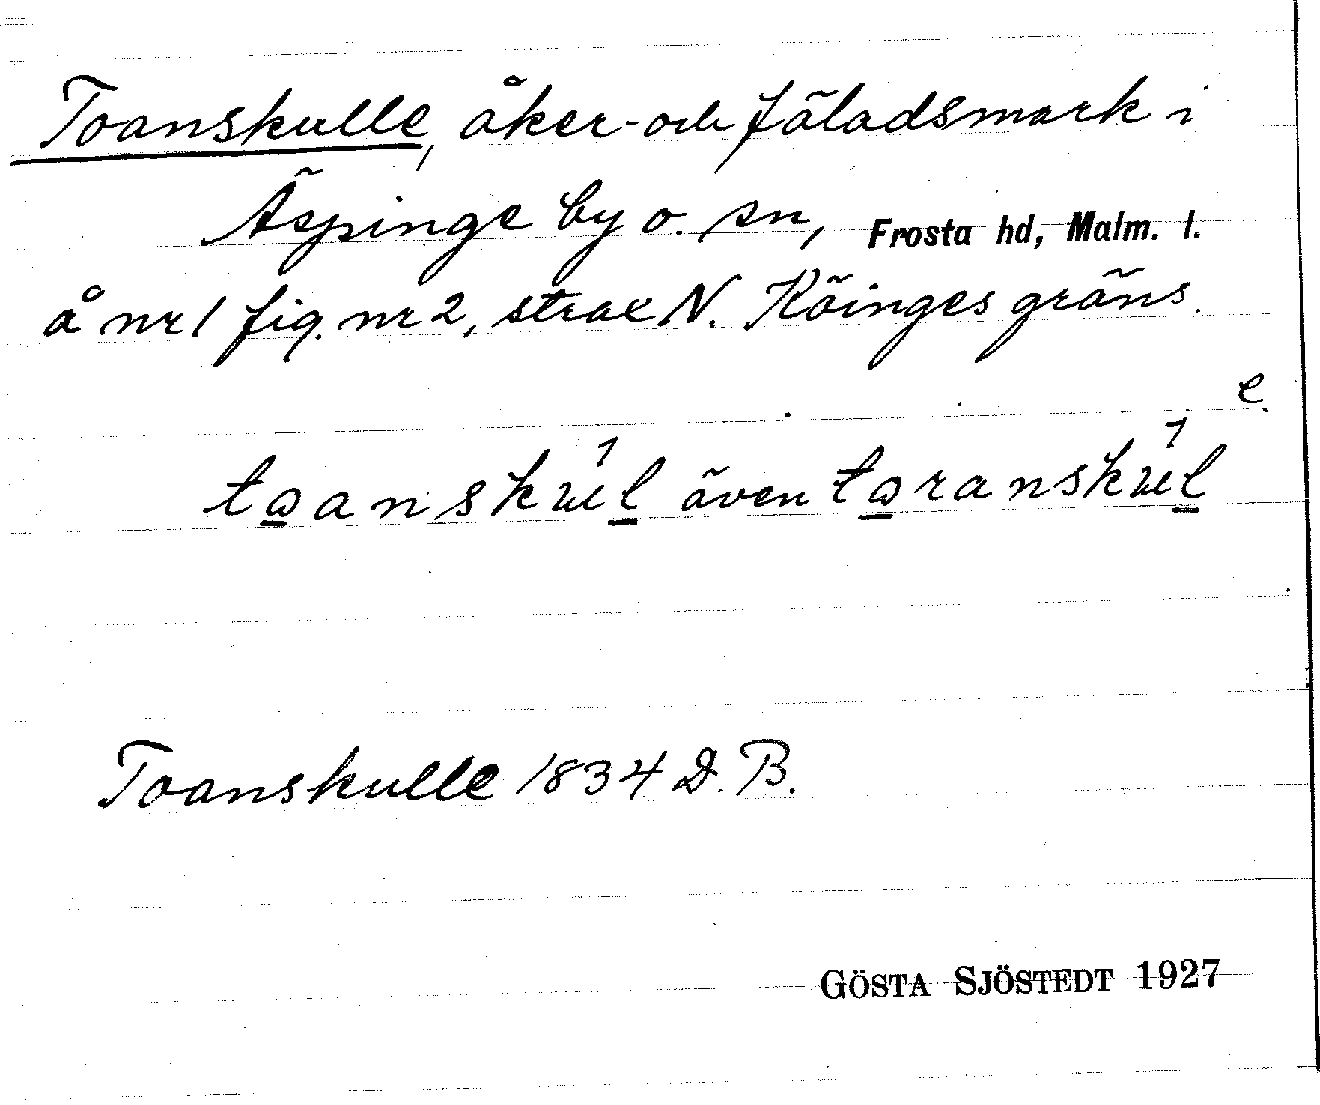 Toanskulle, åker- och fäladsmark i
Äspinge by o. sn, Frosta hd, Malm. l.
å nr 1 fig. nr 2, strax N. Köinges gräns.
e.
toanskul även toranskul
Toanskulle 1834 D. B.
GÖSTA SJÖSTEDT 1927